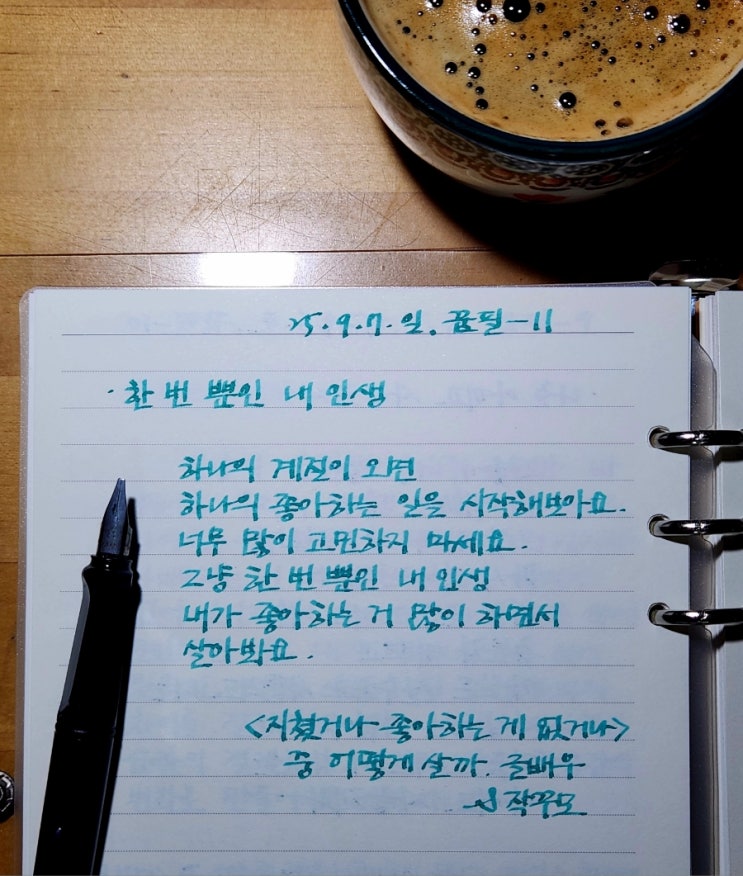 25.9.7.일. 꿈필-11
· 한 번 뿐인 내 인생
하나의 계절이 오면
하나의 좋아하는 일을 시작해보아요.
너무 많이 고민하지 마세요.
그냥 한 번 뿐인 내 인생
내가 좋아하는 거 많이 하면서
살아봐요.
<지쳤거나 좋아하는 게 없거나>
중 어떻게 살까. 글배우
작꾸모